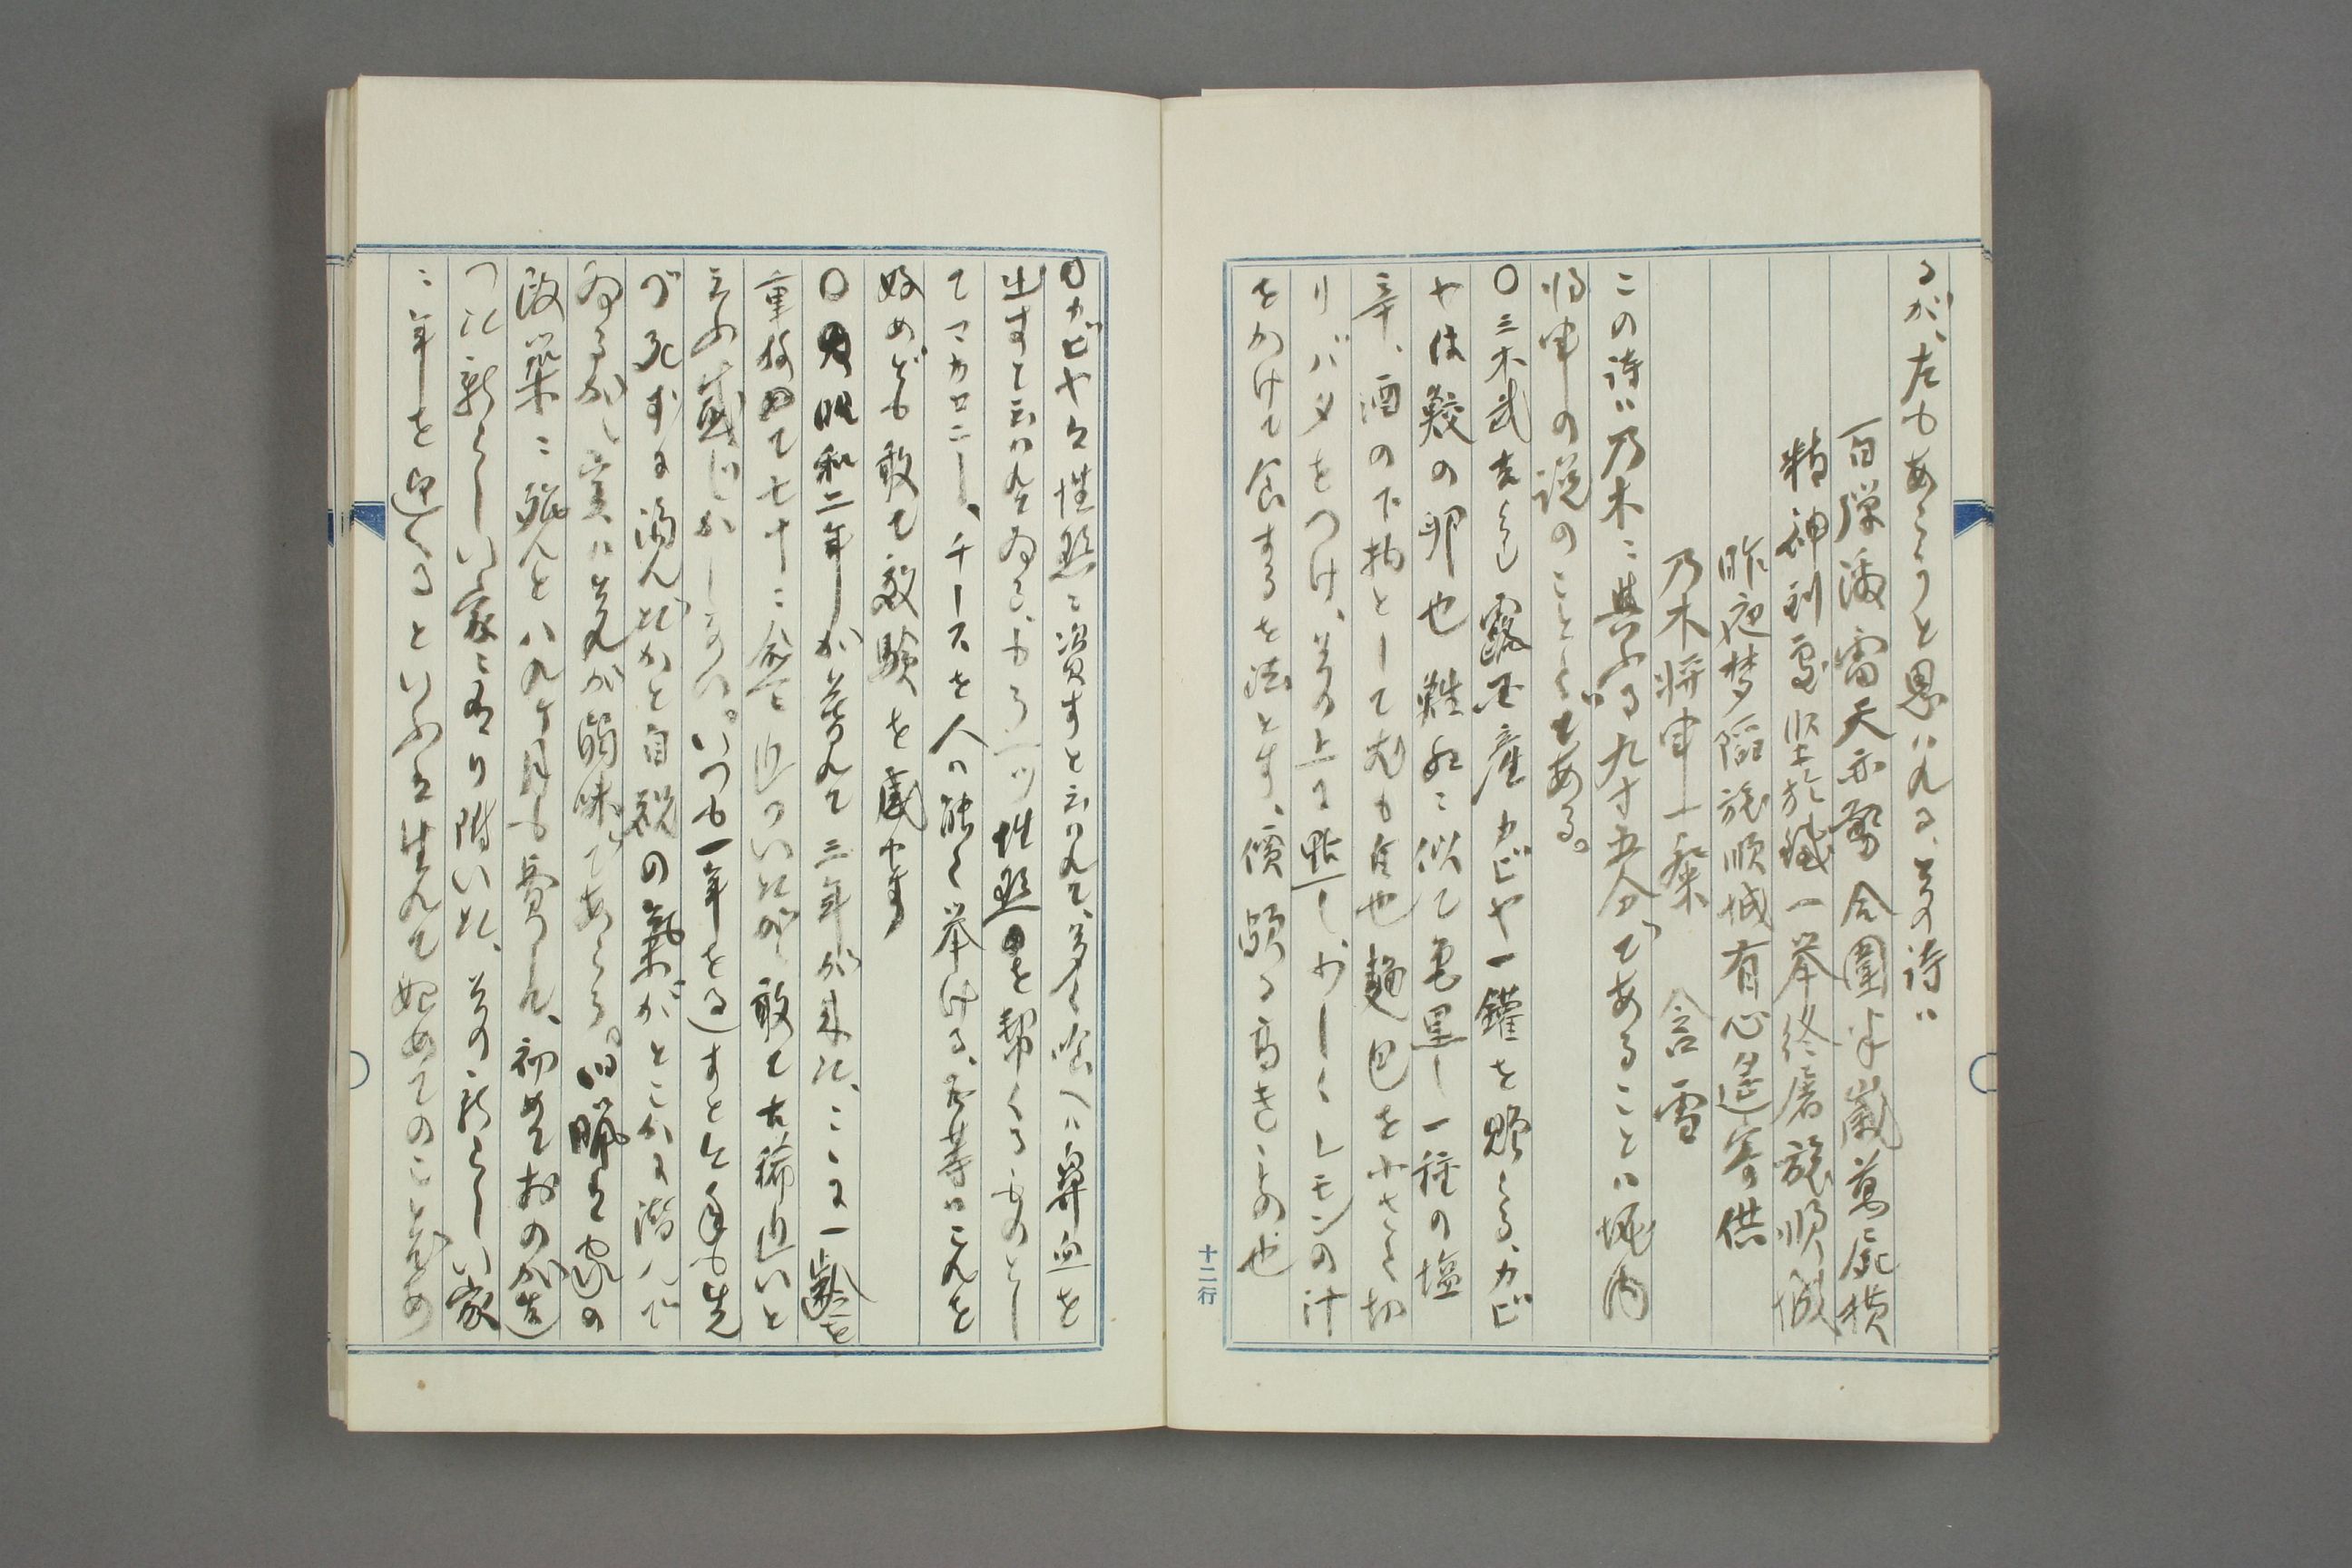 るが、左もあらうと思はれる、其の詩は
百弾激雷天亦驚 合圍半歳萬屍横
精神到處堅於鐵 一挙終屠旅順城
昨夜梦陥旅順城有心遙寄供
乃木将軍一粲 含雪
この詩は乃木に與ふる九寸五分であることは堀内
将軍の説のことくである。
〇三木武吉氏露国産カビヤ一鑵を贈らる、カビ
ヤは鮫の卵也 難卵に似て色黒し一種の塩
辛、酒の下物として尤も佳也 麺包を小さく切
りバタをつけ、其の上に點し少しくレモンの汁
をかけて食するを法とす、價頗る高きもの也
十二行
〇カビヤは性慾に資すと云はれて、多く喰へは鼻血を
出すと云はれてゐる、もう一ツ性慾を幇くるものとし
てマカロニー、チースを人は能く挙ける、余等はこれを
好めども敢て效験を感せす
〇昭和二年が暮れて三年が来た、ここに一齢を
重ねて七十に愈々近ついたが、敢て古稀近いと
云ふ感じがしない。いつも一年を送るすと今年も先
づ死なずに済んだかと自祝の氣がとこかに潜んで
ゐるが、実は其れが弱味であらう。旧臘は家の
改築に殆んと八九ケ月も費して、初めておのが造
つた新らしい家に移り附いた、其の新らしい家
に年を迎へるといふは生れて始めてのことである